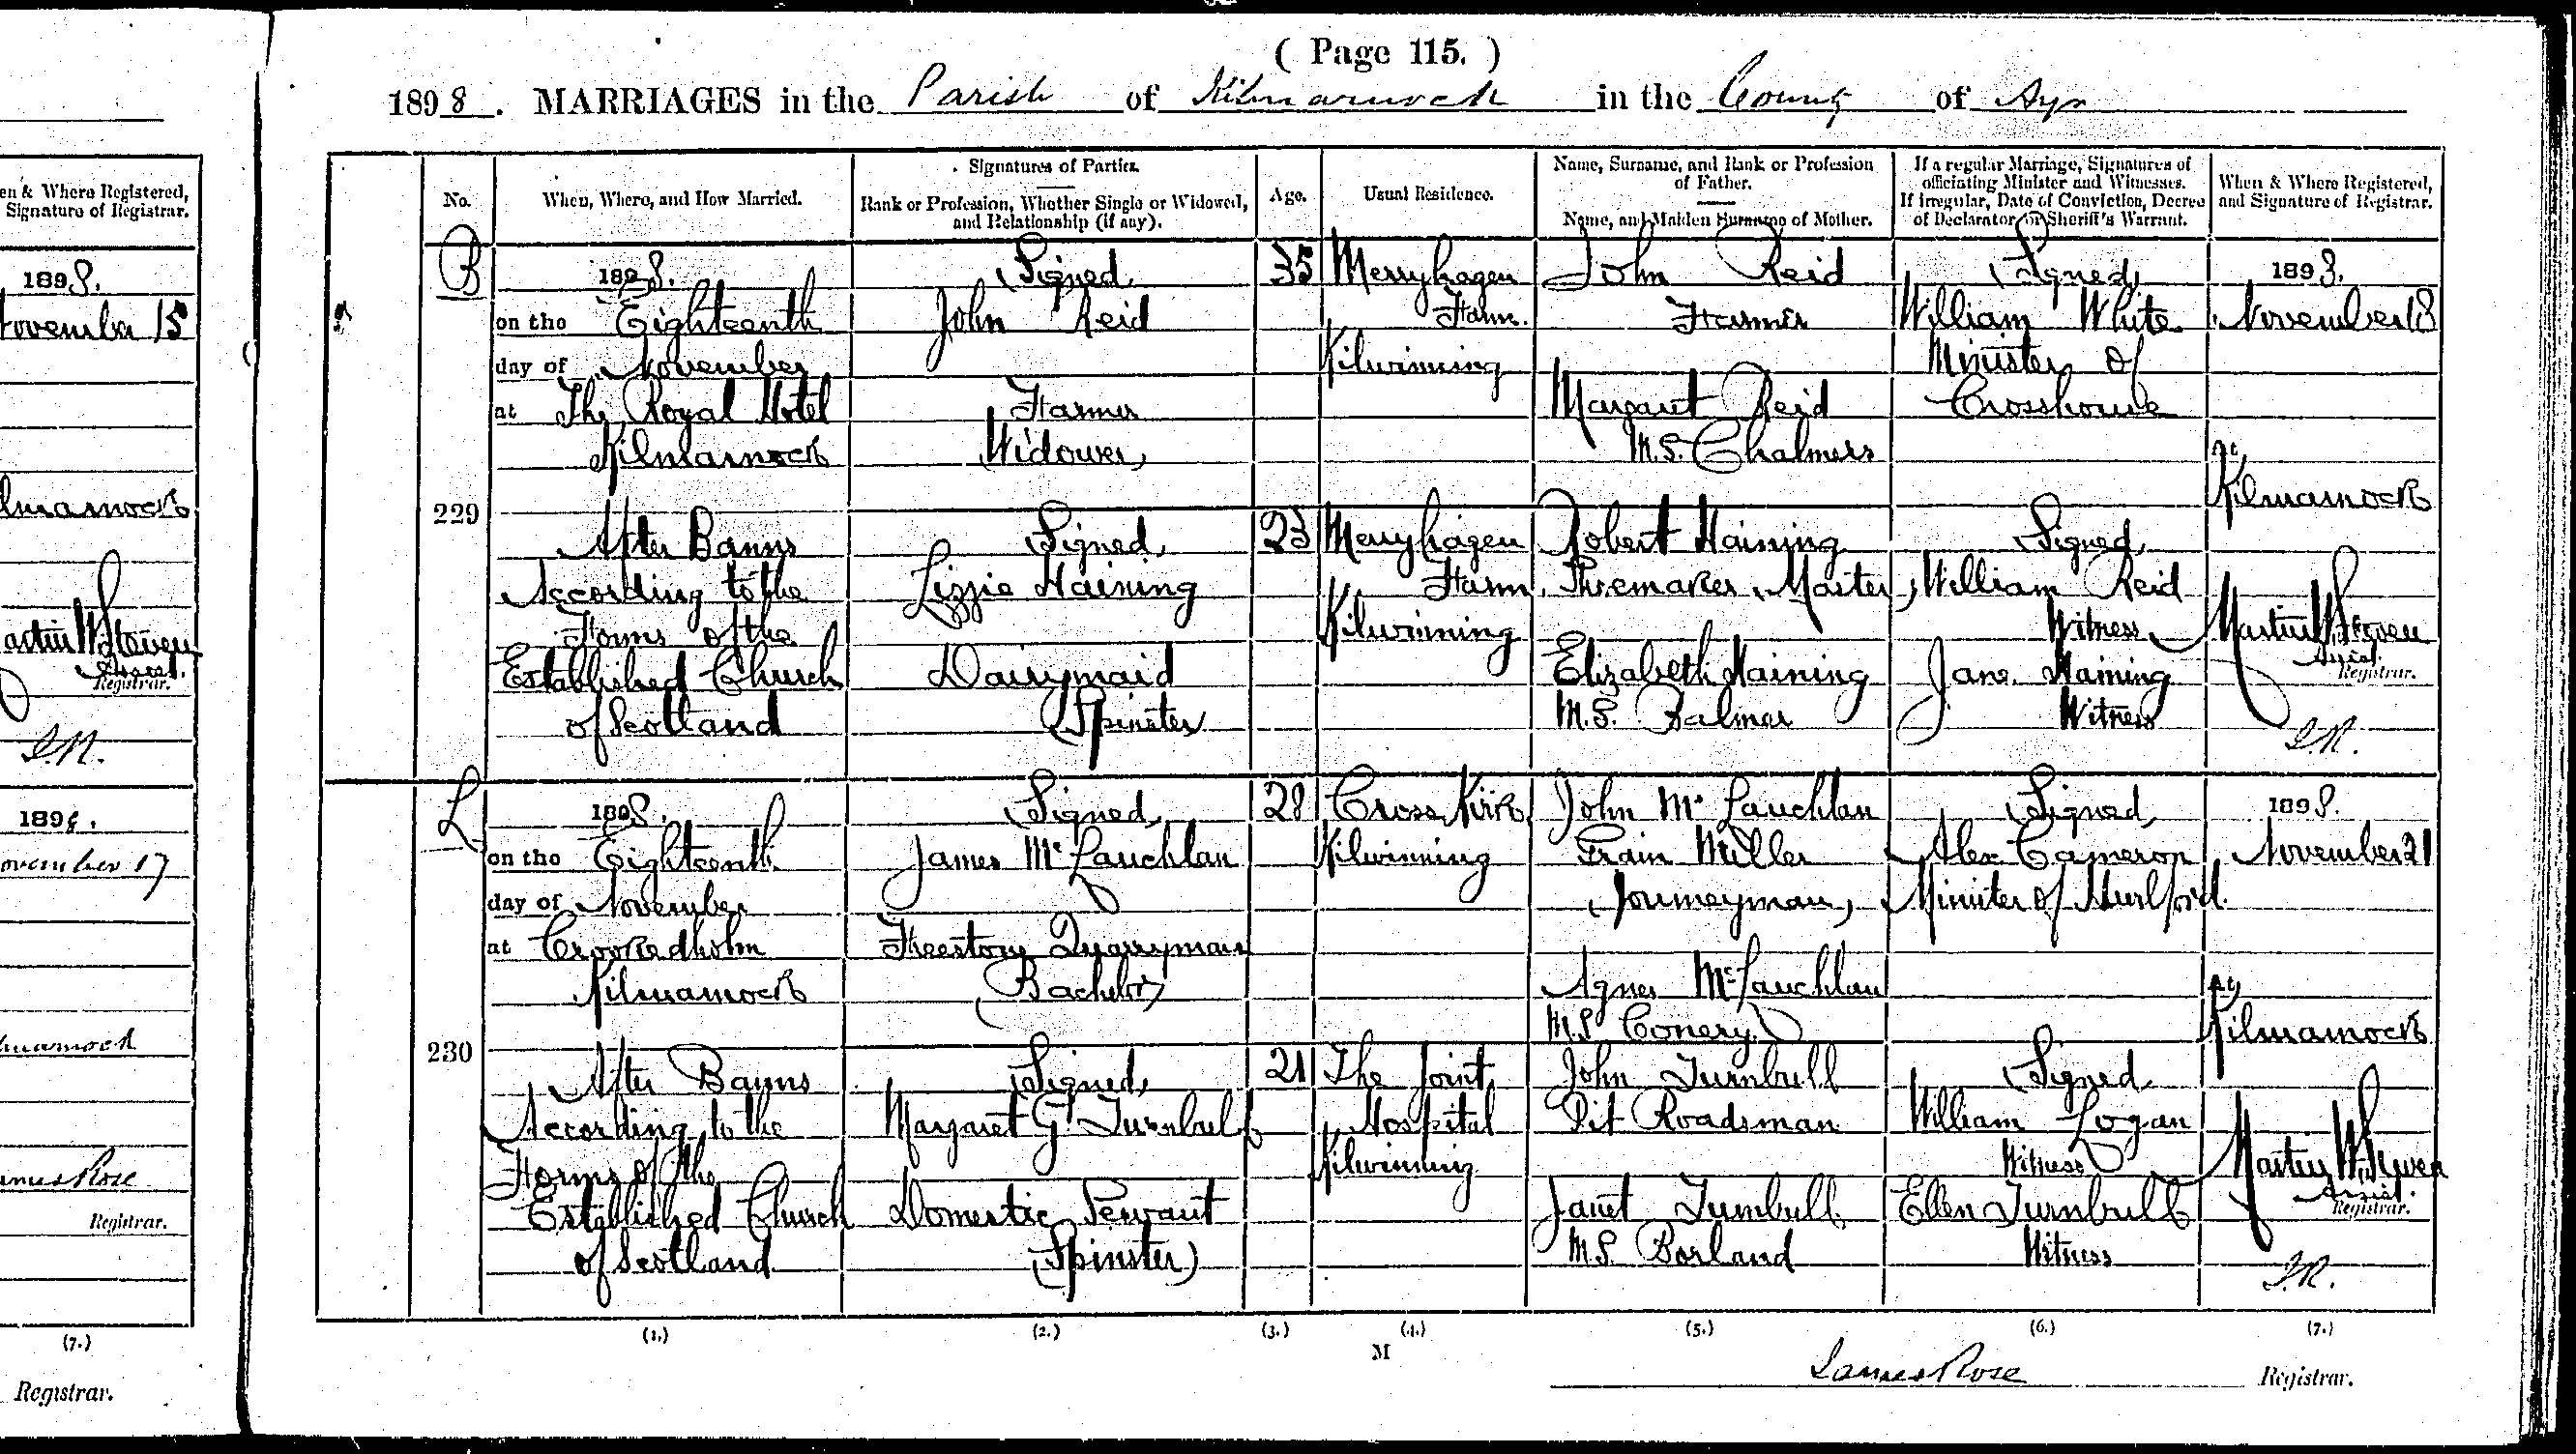 ( Page 115. )
1898. MARRIAGES in the Parish of Kilmarnock in the County of Ayr
en & Where Registered,
Signature of Registrar.
1898.
November 15
lmarnock
artin W Steven
Assist.
Registrar.
J.R.
1898.
ovember 17
lmarnock
James Rose
Registrar.
(7.)
Registrar.
No.
When, Where, and How Married.
Signatures of Parties.
Rank or Profession, Whether Single or Widowed,
and Relationship (if any).
Age.
Usual Residence.
Name, Surname, and Rank or Profession
of Father.
Name, and Maiden Surname of Mother.
If a regular Marriage, Signatures of
officiating Minister and Witnesses.
If irregular, Date of Conviction, Decree
of Declarator, or Sheriff's Warrant.
When & Where Registered,
and Signature of Registrar.
B
229
1898.
on the Eighteenth
day of November
at The Royal Hotel
Kilmarnock
After Banns
According to the
Forms of the
Established Church
of Scotland
(Signed)
John Reid
Farmer
(Widower)
(Signed)
Lizzie Haining
Dairymaid
(Spinster)
35
23
Merryhagen
Farm.
Kilwinning
Merryhagen
Farm,
Kilwinning
John Reid
Farmer
Margaret Reid
M.S. Chalmers
Robert Haining
Shoemaker, Master,
Elizabeth Haining
M.S. Balmer
(Signed)
William White
Minister of
Crosshouse
(Signed)
William Reid
Witness
Jane Haining
Witness
1898.
November 18
At
Kilmarnock
Martin W Steven
Assist.
Registrar.
J.R.
L
230
1898.
on the Eighteenth
day of November
at Crookedholm
Kilmarnock
After Banns
According to the
Forms of the
Established Church
of Scotland
(Signed)
James McLauchlan
Freestone Quarryman
(Bachelor)
(Signed)
Margaret G Turnbull
Domestic Servant
(Spinster)
28
21
Cross Kirk
Kilwinning
The Joint
Hospital
Kilwinning
John McLauchlan
Grain Miller
(Journeyman)
Agnes McLauchlan
M.S. Conery
John Turnbull
Pit Roadsman
Janet Turnbull
M.S. Borland
(Signed)
Alex Cameron
Minister of Hurlford.
(Signed)
William Logan
Witness
Ellen Turnbull
Witness
1898.
November 21
At
Kilmarnock
Martin W Steven
Assist.
Registrar.
J.R.
(1.) (2.) (3.) (4.) (5.) (6.) (7.)
M
James Rose Registrar.